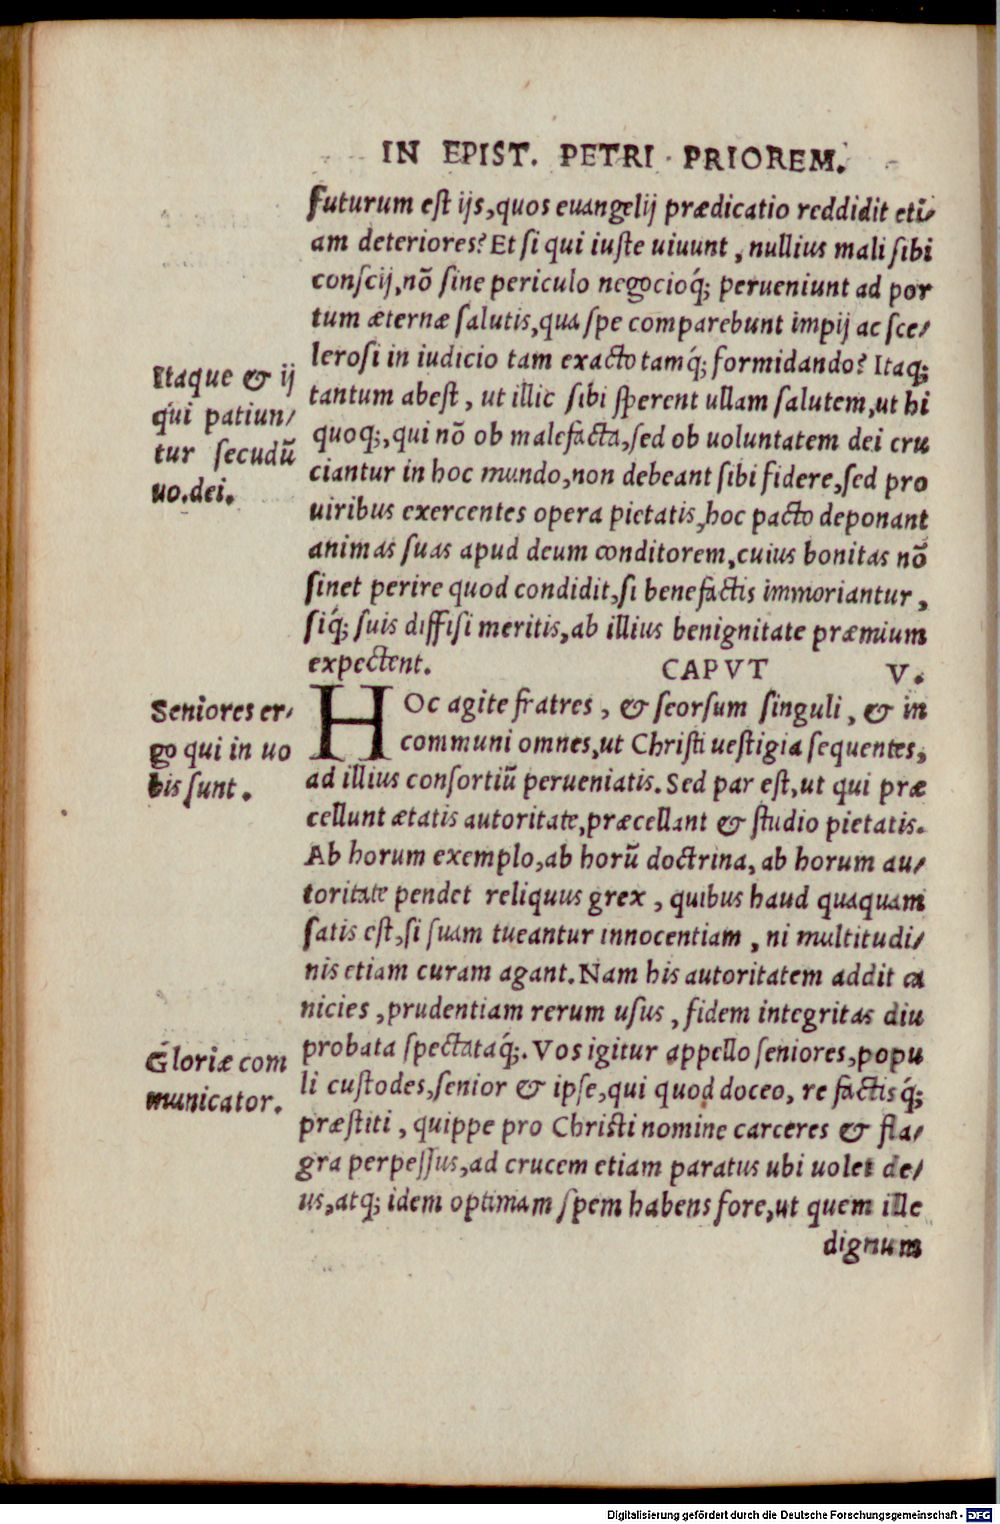 IN EPIST. PETRI PRIOREM.
futurum est ijs, quos euangelij prædicatio reddidit eti/
am deteriores? Et si qui iuste uiuunt, nullius mali sibi
conscij, nō sine periculo negocioq́; perueniunt ad por
tum æternæ salutis, qua spe comparebunt impij ac sce/
lerosi in iudicio tam exacto tamq́; formidando? Itaq;
tantum abest, ut illic sibi sperent ullam salutem, ut hi
quoq;, qui nō ob malefacta, sed ob uoluntatem dei cru
ciantur in hoc mundo, non debeant sibi fidere, sed pro
uiribus exercentes opera pietatis, hoc pacto deponant
animas suas apud deum conditorem, cuius bonitas nō
sinet perire quod condidit, si benefactis immoriantur,
siq́; suis diffisi meritis, ab illius benignitate præmium
expectent. CAPVT V.
Itaque & ij
qui patiun/
tur secudū
uo. dei.
HOc agite fratres, & seorsum singuli, & in
communi omnes, ut Christi uestigia sequentes,
ad illius consortiū perueniatis. Sed par est, ut qui præ
cellunt ætatis autoritate, præcellant & studio pietatis.
Ab horum exemplo, ab horū doctrina, ab horum au/
toritate pendet reliquus grex, quibus haud quaquam
satis est, si suam tueantur innocentiam, ni multitudi/
nis etiam curam agant. Nam his autoritatem addit ca
nicies, prudentiam rerum usus, fidem integritas diu
probata spectataq́;. Vos igitur appello seniores, popu
li custodes, senior & ipse, qui quod doceo, re factisq́;
præstiti, quippe pro Christi nomine carceres & fla/
gra perpessus, ad crucem etiam paratus ubi uolet de/
us, atq; idem optimam spem habens fore, ut quem ille
dignum
Seniores er/
go qui in uo
bis sunt.
Gloriæ com
municator.
Digitalisierung gefördert durch die Deutsche Forschungsgemeinschaft - DFG